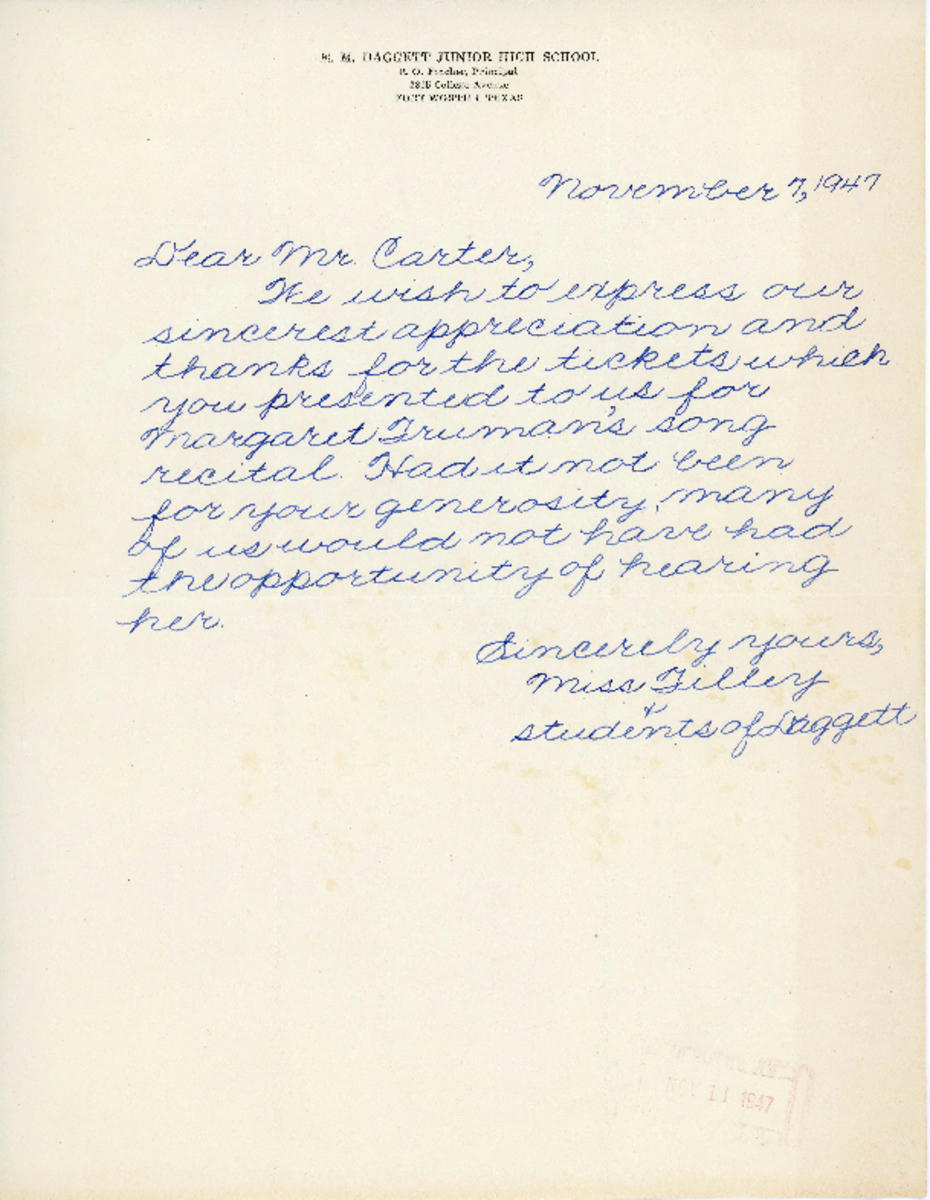 E. M. DAGGETT JUNIOR HIGH SCHOOL
Principal
College Avenue
FORT WORTH 4 TEXAS
November 7, 1947
Dear Mr. Carter,
We wish to express our
sincerest appreciation and
thanks for the tickets which
you presented to us for
Margaret Truman's song
recital. Had it not been
for your generosity, many
of us would not have had
the opportunity of hearing
her.
Sincerely yours,
Miss Tilley
&
students of Daggett
NOV 11 1947